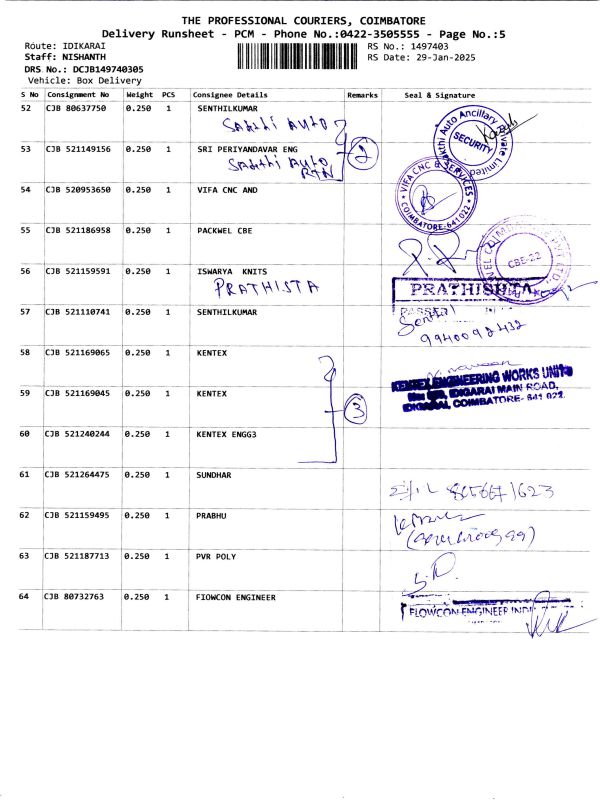 THE PROFESSIONAL COURIERS, COIMBATORE
Delivery Runsheet - PCM - Phone No.:0422-3505555 - Page No.:5
Route: IDIKARAI RS No.: 1497403
Staff: NISHANTH RS Date: 29-Jan-2025
DRS No.: DCJB149740305
Vehicle: Box Delivery
S No Consignment No Weight PCS Consignee Details Remarks Seal & Signature
52 CJB 80637750 0.250 1 SENTHILKUMAR
Sakthi Auto
Sakthi Auto Ancillary Private Limited
SECURITY
53 CJB 521149156 0.250 1 SRI PERIYANDAVAR ENG
Sakthi Auto
RTN
2
54 CJB 520953650 0.250 1 VIFA CNC AND
VIFA CNC & SERVICES
COIMBATORE-641 022
55 CJB 521186958 0.250 1 PACKWEL CBE
CBE-22
56 CJB 521159591 0.250 1 ISWARYA KNITS
PRATHISTA
PRATHISHTA
PASSED
57 CJB 521110741 0.250 1 SENTHILKUMAR
9940098432
58 CJB 521169065 0.250 1 KENTEX
59 CJB 521169045 0.250 1 KENTEX
3
KENTEX ENGINEERING WORKS UNIT
IDIGARAI MAIN ROAD,
IDIGARAI, COIMBATORE- 641 022.
60 CJB 521240244 0.250 1 KENTEX ENGG3
61 CJB 521264475 0.250 1 SUNDHAR
62 CJB 521159495 0.250 1 PRABHU
63 CJB 521187713 0.250 1 PVR POLY
64 CJB 80732763 0.250 1 FIOWCON ENGINEER
FLOWCON ENGINEER INDI